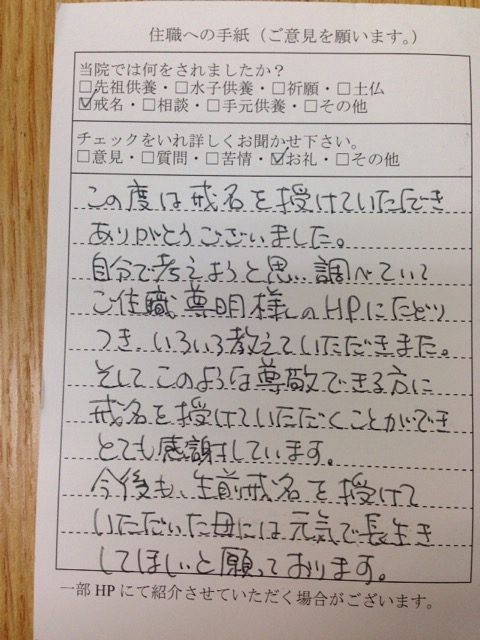 住職への手紙（ご意見を願います。）
当院では何をされましたか？
□先祖供養・□水子供養・□祈願・□土仏
☑戒名・□相談・□手元供養・□その他
チェックをいれ詳しくお聞かせ下さい。
□意見・□質問・□苦情・☑お礼・□その他
この度は戒名を授けていただき
ありがとうございました。
自分で考えようと思い調べていて
ご住職 尊明様のHPにたどり
つき、いろいろ教えていただきまた。
そしてこのような尊敬できる方に
戒名を授けていただくことができ
とても感謝しています。
今後も、生前戒名を授けて
いただいた母には元気で長生き
してほしいと願っております。
一部HPにて紹介させていただく場合がございます。